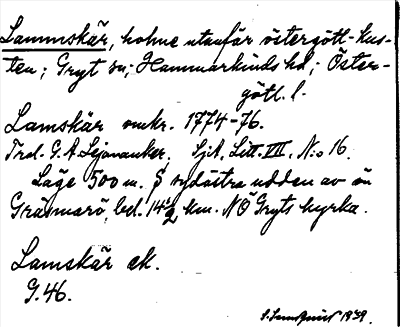 Lammskär, holme utanför östergötl.-kus-
ten; Gryt sn; Hammarkinds hd; Öster-
götl. l.
Lamskär omkr. 1774-76.
Trol. G. A. Lejonanker, Sjk, Litt. VIII. N:o 16.
Läge 500 m. S sydöstra udden av ön
Gräsmarö, bel. 14½ km. NO Gryts kyrka.
Lamskär ek.
G.46.
1939.